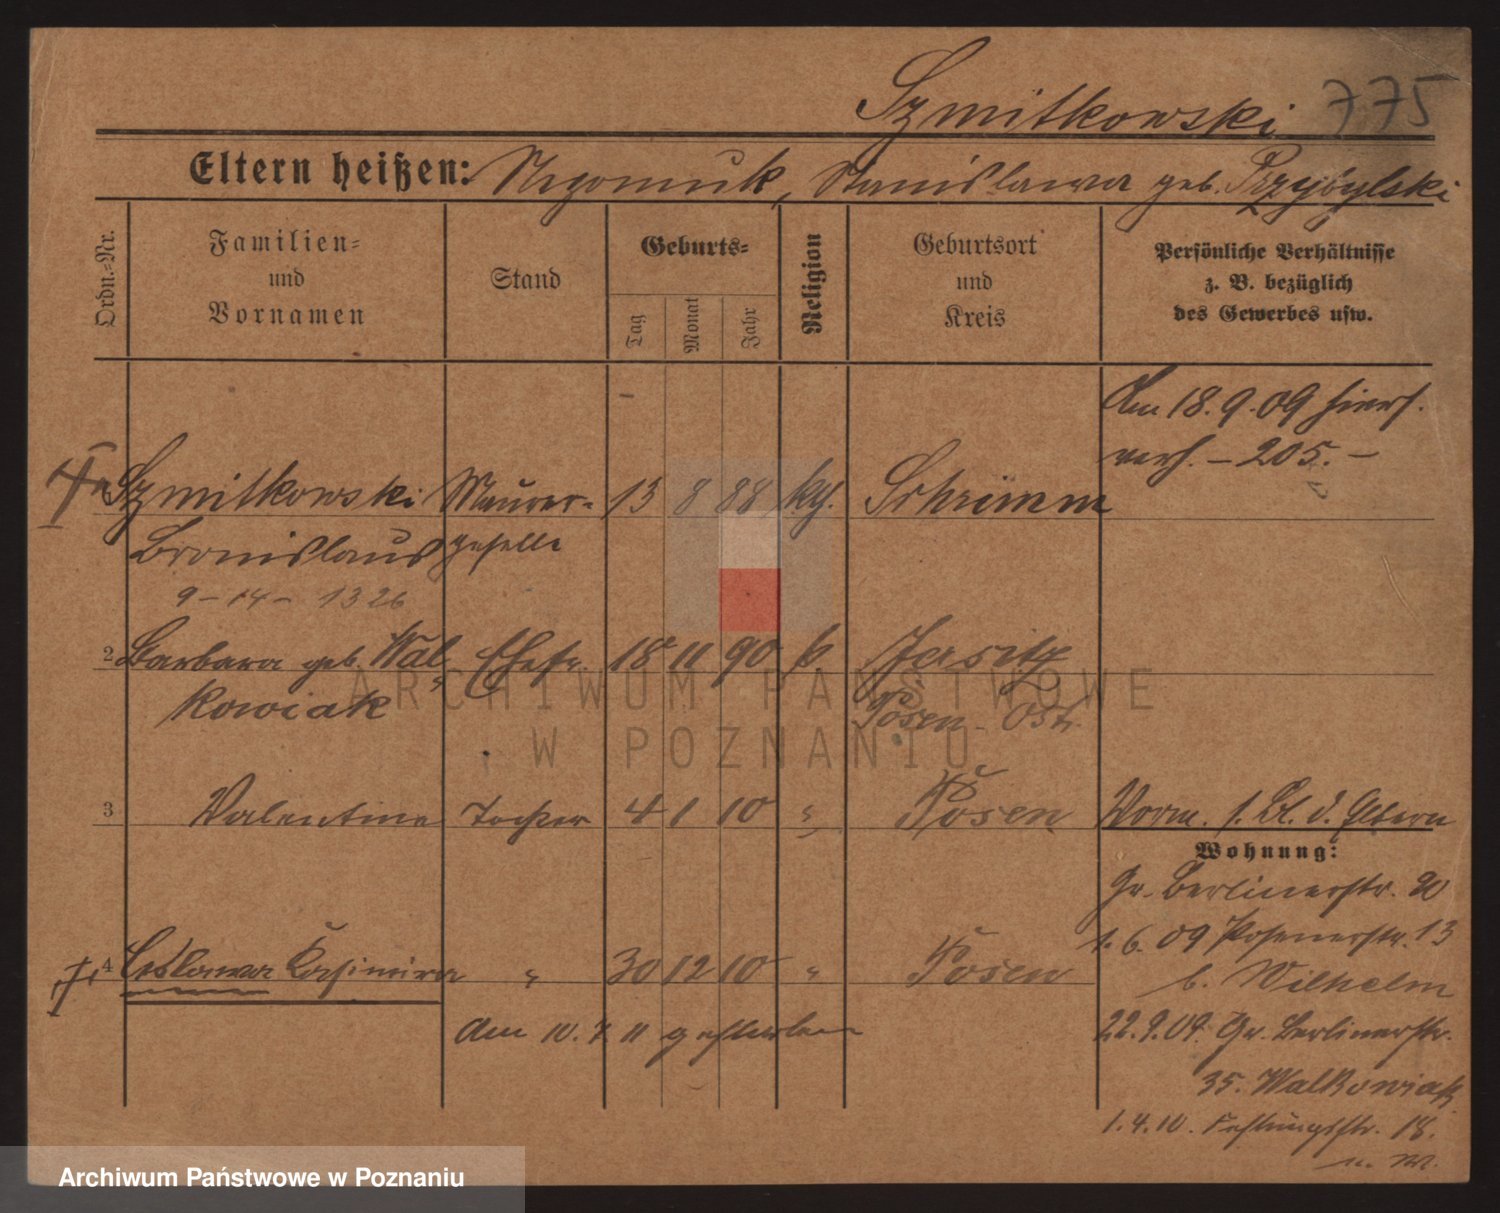 Szmitkowski 775
Eltern heißen: Nepomuk, Stanislawa geb. Przybylski
Ordn.-Nr.
Familien-
und
Vornamen
Stand
Geburts-
Tag
Monat
Jahr
Religion
Geburtsort
und
Kreis
Persönliche Verhältnisse
z. B. bezüglich
des Gewerbes usw.
Am 18.9.09 hiers.
verh. – 205. –
Szmitkowski Maurer- 13 8 88 kth. Schrimm
Bronislaus geselle
9 – 14 – 1326
2 Barbara geb. Wal- Ehefr. 18 11 90 k. Jersitz
kowiak Posen-Ost.
3 Valentine Tochter 4 1 10 " Posen
Vorm. f. Bl. d. Eltern
Wohnung:
Gr. Berlinerstr. 90
1.6.09 Posenerstr. 13
b. Wilhelm
4 Ceslawa Casimira " 30 12 10 " Posen
am 10.7.11 gestorben
22.9.09. Gr. Berlinerstr.
35. Walkowiak
1.4.10. Festungsstr. 18.
ARCHIWUM PAŃSTWOWE
W POZNANIU
Archiwum Państwowe w Poznaniu